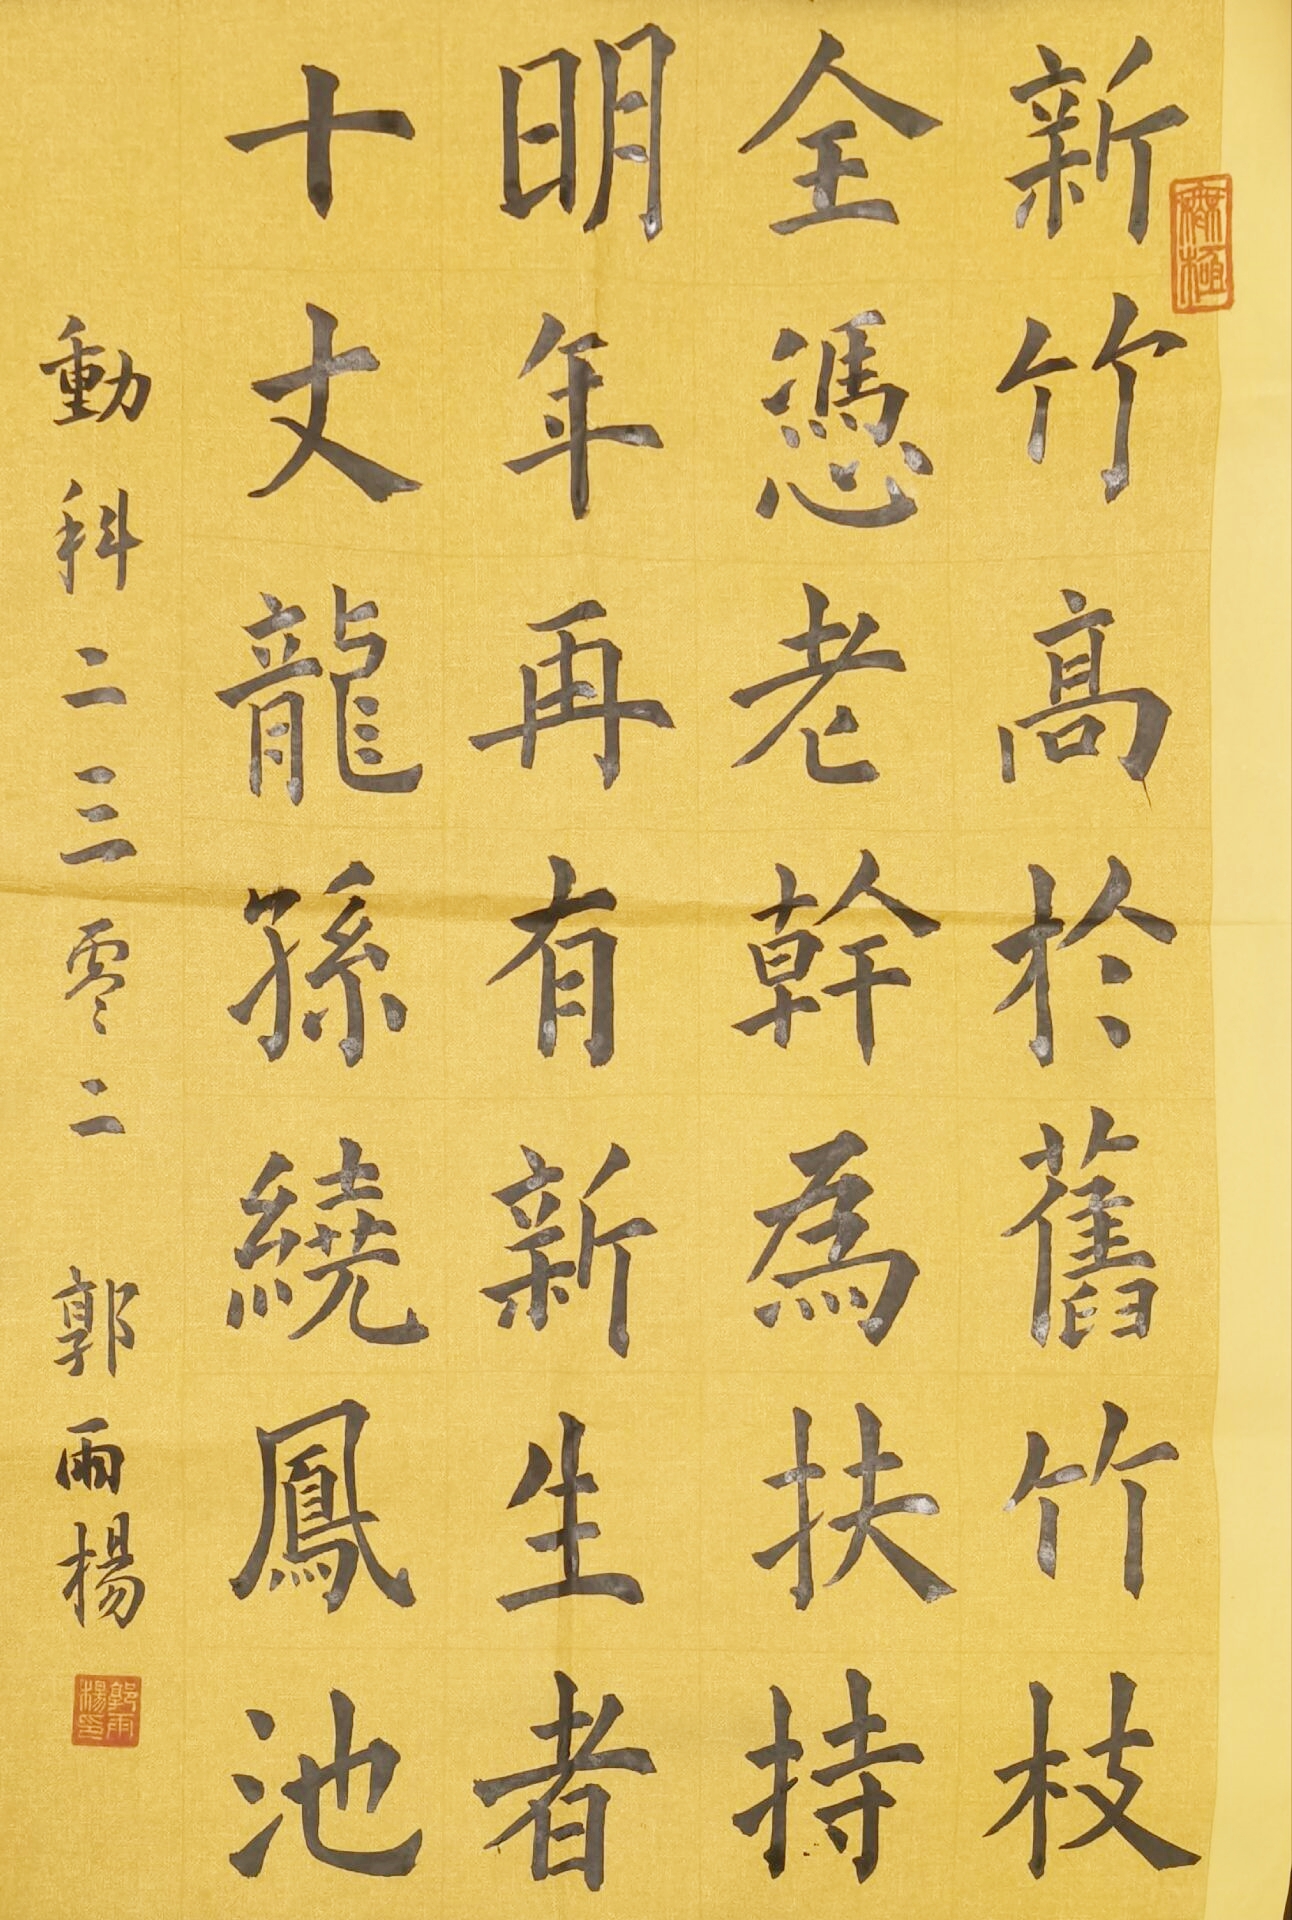 新竹高於舊竹枝
全憑老幹為扶持
明年再有新生者
十丈龍孫繞鳳池
動科二三零二 郭雨楊
無極
郭雨楊印